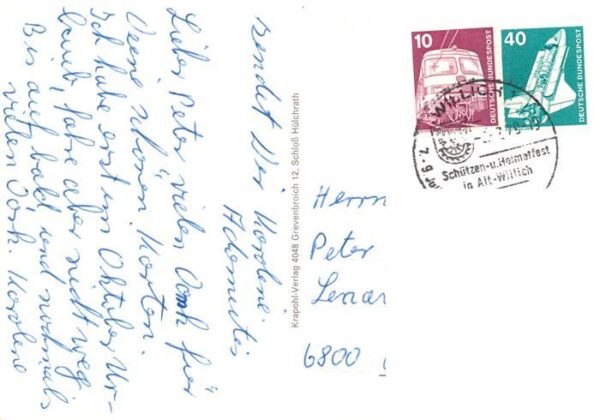 Lieber Peter vielen Dank für
Deine schönen Karten.
Ich habe erst im Oktober Ur-
laub, fahre aber nicht weg
Bis auf bald und nochmals
vielen Dank. Karolene
sendet Dir Karolene
Krapohl-Verlag 4048 Grevenbroich 12, Schloß Hülchrath
10
DEUTSCHE BUNDESPOST
40
DEUTSCHE BUNDESPOST
WILLICH
Schützen-u.Heimatfest
in Alt-Willich
7.-9. Ju
Herrn
Peter
Lenar
6800